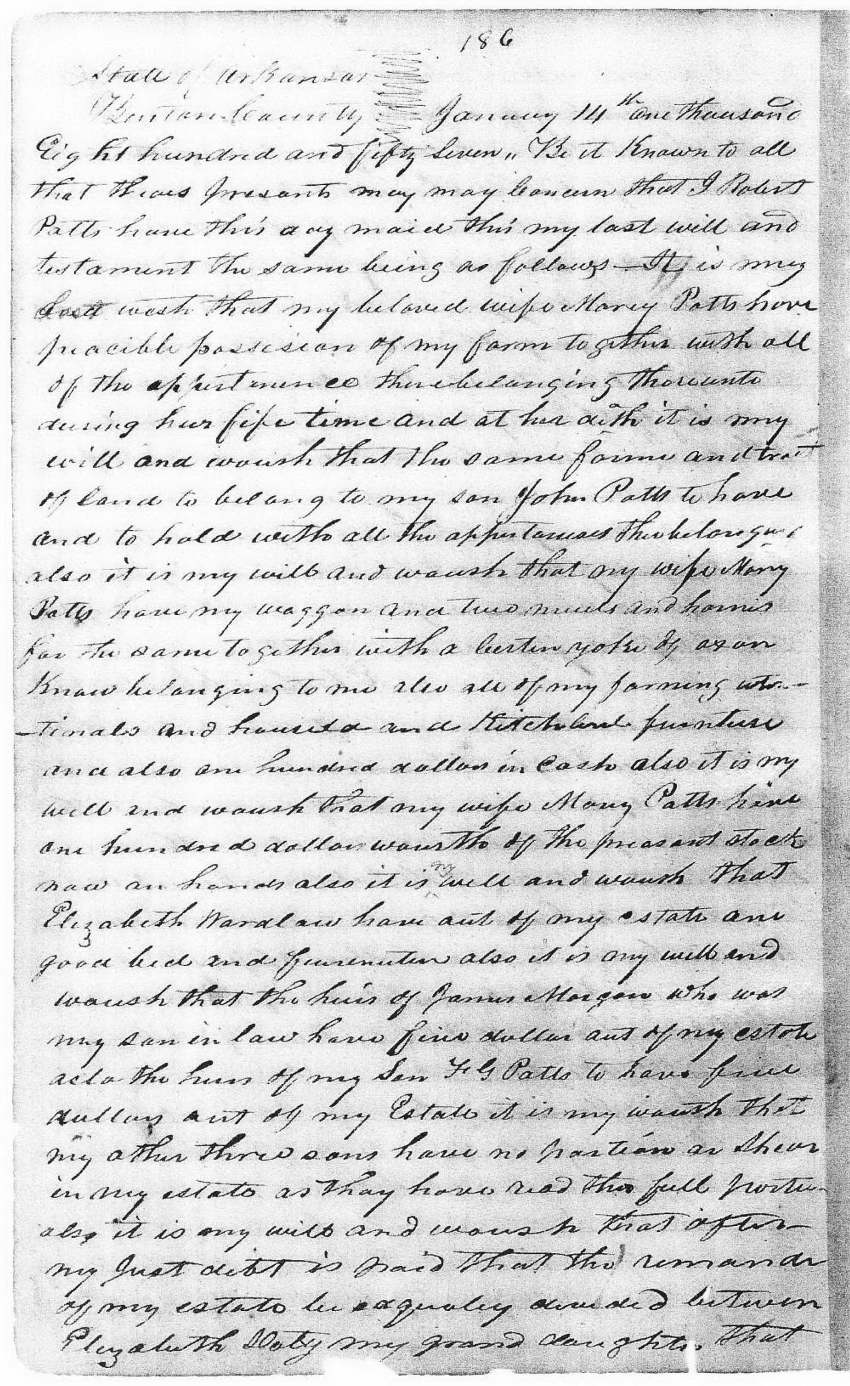 186
State of Arkansas
Benton County January 14th One thousand
Eight hundred and fifty Seven, Be it Known to all
that theas presants may may Concern that I Robert
Patts have this day maid this my last will and
testament the same being as follows - It is my
wosh that my beloved wife Marey Patts have
peacible possision of my farm together with all
of the appertinence there belanging thereunto
during hur fife time and at her deth it is my
will and woush that the same farme and tract
of land to belong to my son John Patts to have
and to hold with all the appertances
also it is my will and woush that my wife Mary
Patts have my waggon and two muels and harnis
for the same together with a certin yoke of oxon
Know belanging to me also all of my farming
and and Kitchen furniture
and also one hundred dollars in Cash also it is my
will and woush that my wife Mary Patts have
one hundred dollar wourth of the preasant stock
now an hands also it is my will and woush that
Elizabeth Wardlaw have aut of my estate one
good bed and also it is my will and
woush that the heirs of James Morgan who was
my son in law have five dollar aut of my estate
aslo the heirs of my Son F G Patts to have five
dollars out of my Estate it is my woush that
my other three sons have no partion or Shear
in my estate as thay have the full
also it is my will and woush that after
my Just debt is paid that the remandr
of my estate be devided between
Elizabeth my grand daughter that